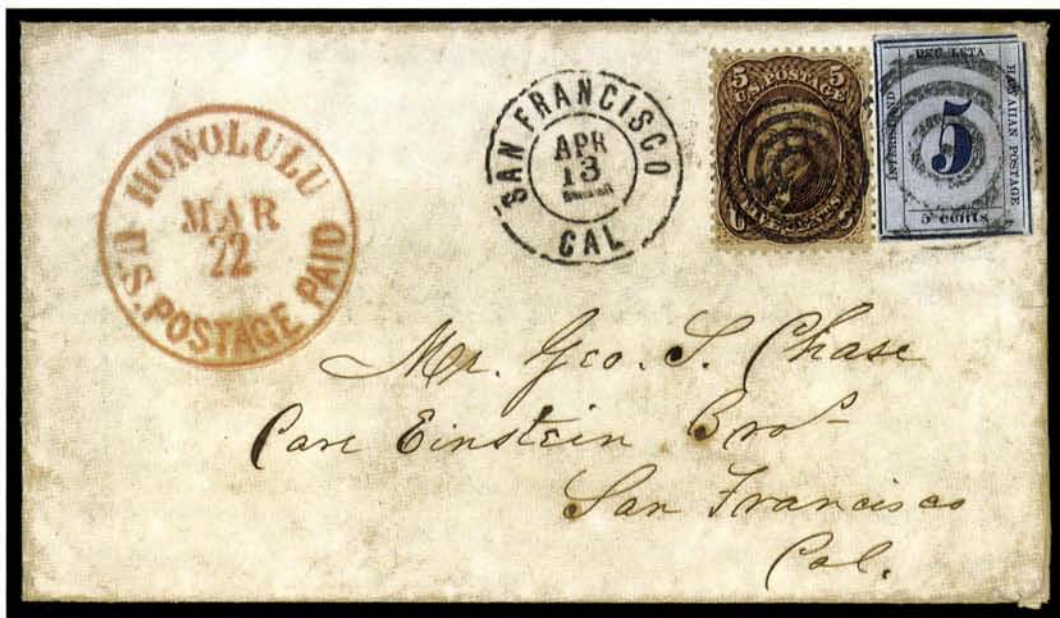 HONOLULU
MAR
22
U.S. POSTAGE PAID
SAN FRANCISCO
APR
13
CAL
5 5
U.S. POSTAGE
5
INTERISLAND
HAWAIIAN POSTAGE
5 cents
Mr. Geo. S. Chase
Care Einstein Bros
San Francisco
Cal.